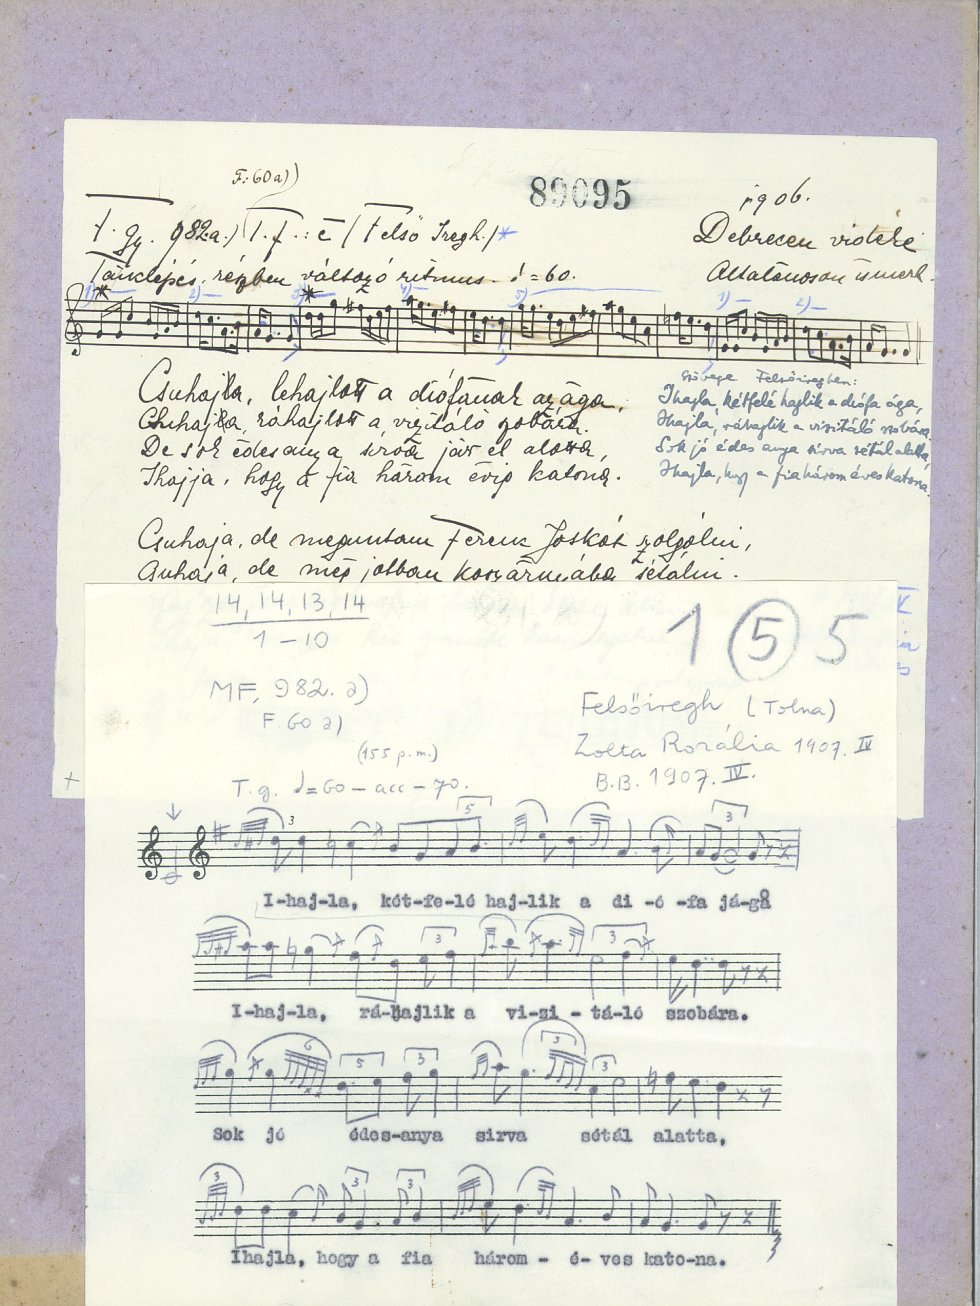 F. 60 a))
89095
1906.
T. gy. 982.a.) T. f. : c (Felső Iregh.)*
Debrecen vidéke
Tánclépés, részben változó ritmus. ♩=60.
Általánosan ismert.
1) 2) 4) 5) 1) 2)
Csuhajla, lehajlott a diófának az ága,
Csuhajla, ráhajlott a vizitáló szobára.
De sok édesanya, szoba jár el alatta,
Ihajja, hogy a fia három évig katona.
szövege Felsőiregben:
Ihajla, kétfelé hajlik a diófa ága,
Ihajla, ráhajlik a vizitáló szobára.
Sok jó édes anya sírva sétál alatta,
Ihajla, hogy a fia három éves katona.
Csuhaja, de meguntam Ferenc Jóskát szolgálni,
Csuhaja, de még jobban kaszárnyába sétálni.
14, 14, 13, 14
1 – 10
1 5 5
MF. 982. a)
F 60 a)
(155 p.m.)
T. g. ♩=60 – acc – 70.
Felsőiregh (Tolna)
Zolta Rozália 1907. IV
B.B. 1907. IV.
I-haj-la, két-fe-lé haj-lik a di-ó-fa já-ga
I-haj-la, rá-hajlik a vi-zi-tá-ló szobára.
Sok jó édes-anya sirva sétál alatta,
Ihajla, hogy a fia három-é-ves kato-na.